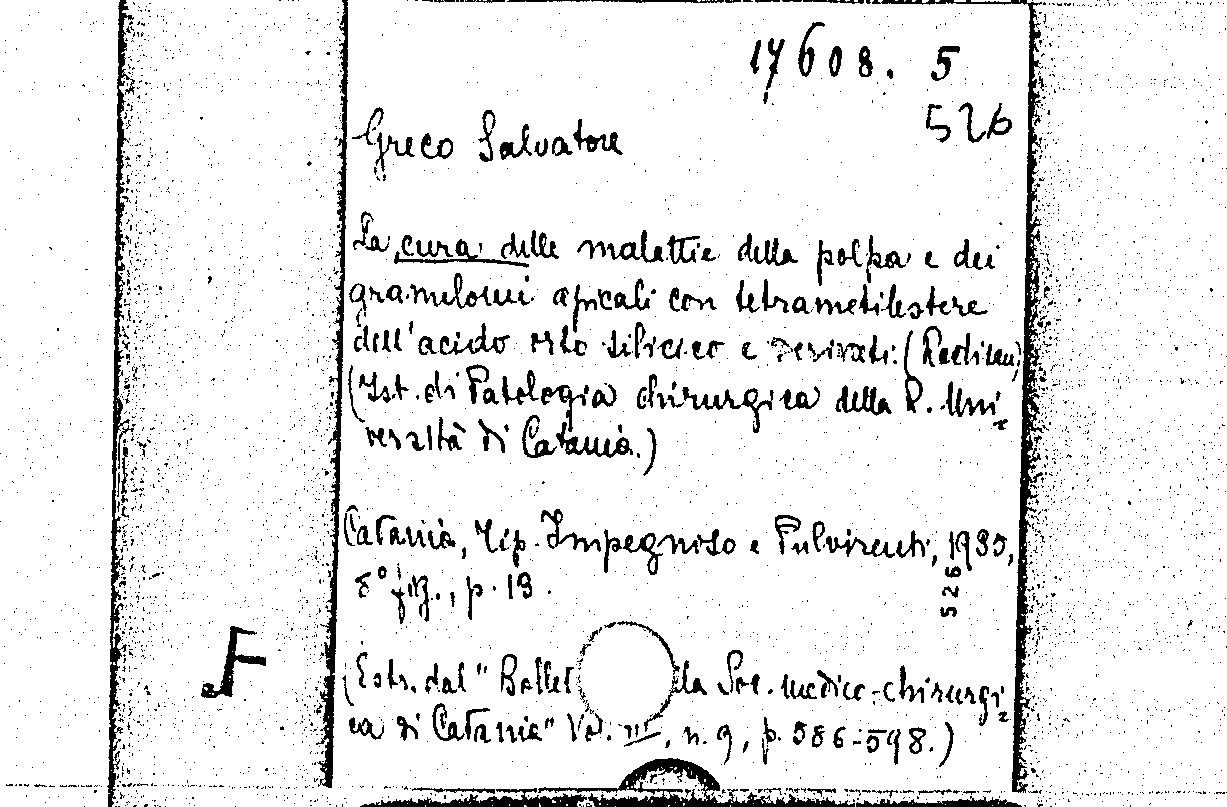 17608. 5
526
Greco Salvatore
La cura delle malattie della polpa e dei
granulomi apicali con tetrametilestere
dell'acido orto silicico e derivati. (
(Ist. di Patologia chirurgica della R. Uni-
versità di Catania.)
Catania, Tip. Impegnoso e Pulvirenti, 1935,
8° fig., p. 13.
526
(Estr. dal "Bollet lla Soc. medico-chirurgi-
ca di Catania" Vol. III, n. 9, p. 586-598.)
F